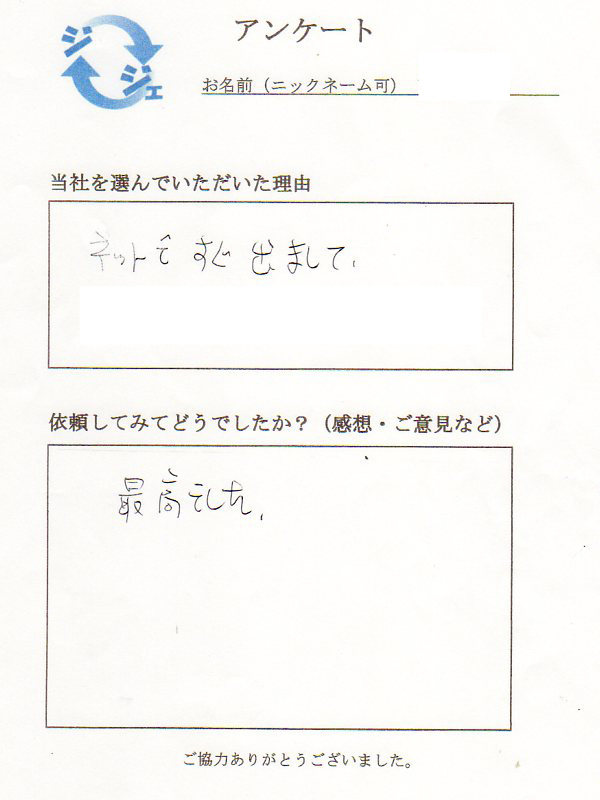 ジジェ
アンケート
お名前（ニックネーム可）
当社を選んでいただいた理由
ネットで すぐ 出まして、
依頼してみてどうでしたか？（感想・ご意見など）
最高でした、
ご協力ありがとうございました。